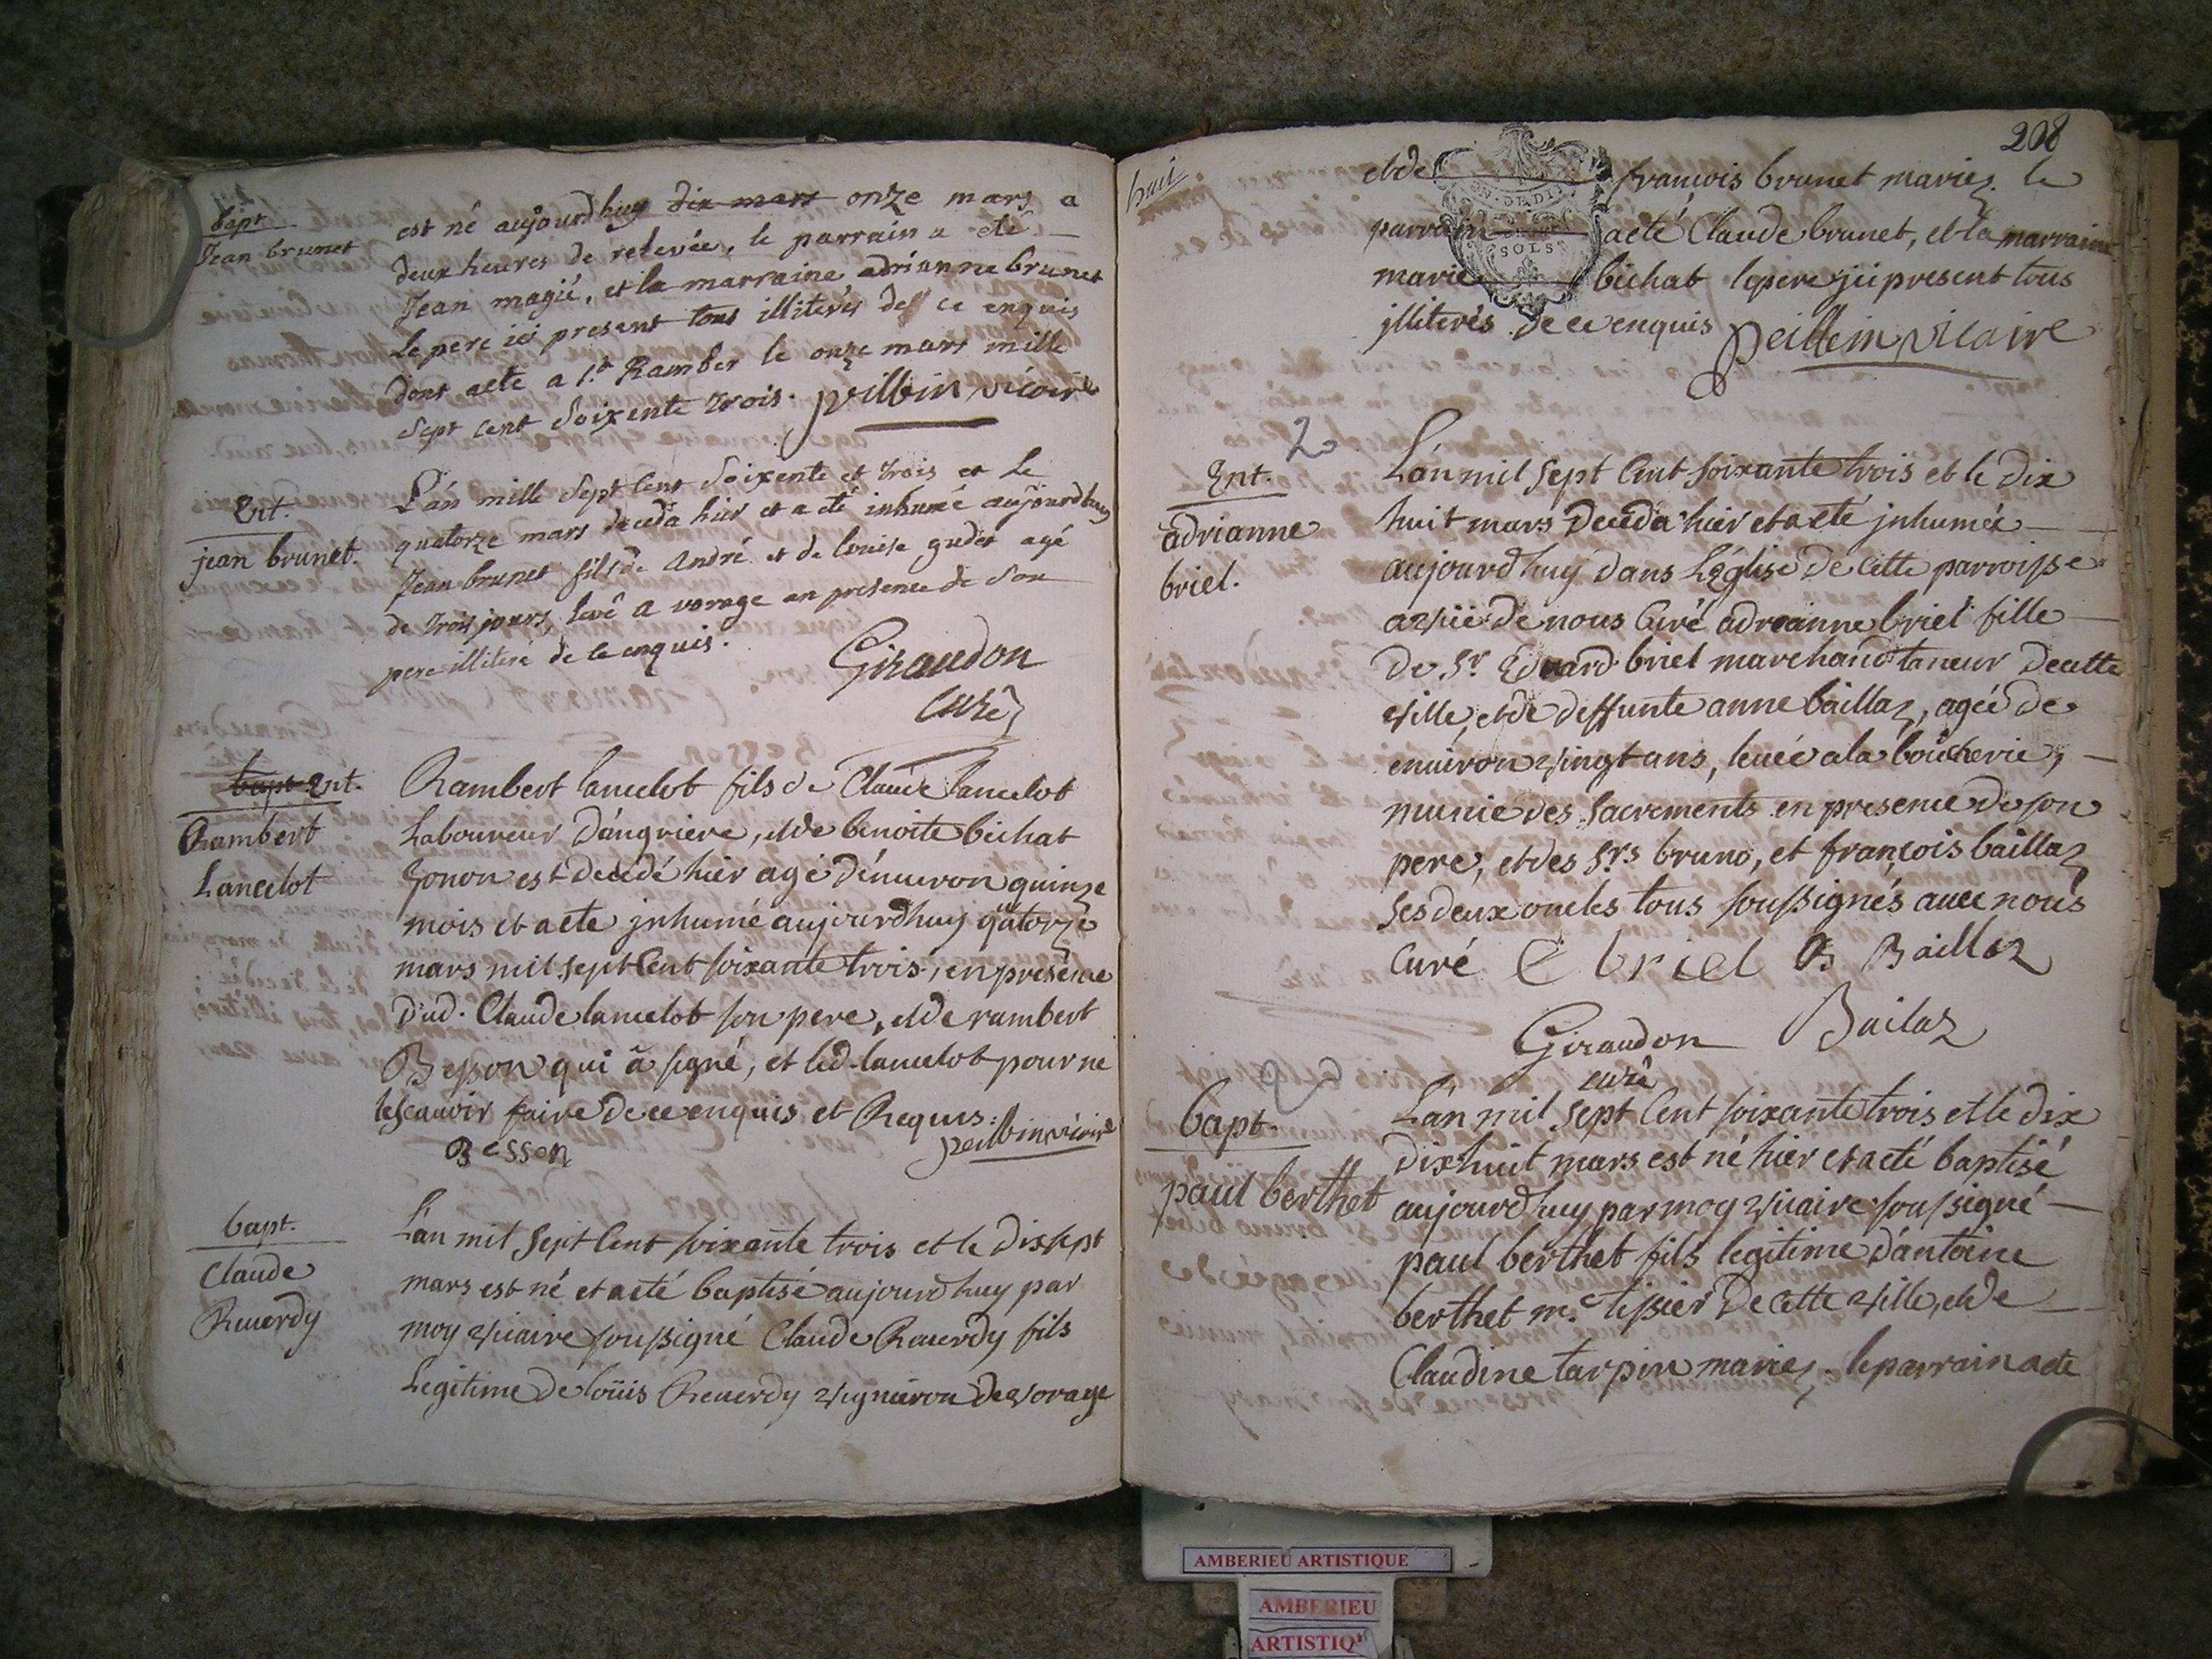 bapt
Jean brunet
est né aujourdhuy dix mars onze mars a
deux heures de relevée, le parrain a eté
Jean magié, et la marraine adrianne brunet
le pere ici present tous illiterés de ce enquis
dont acte a St. Ramber le onze mars mille
sept cent soixente trois. peillein vicaire
Ent.
jean brunet.
L'an mille sept cent soixente et trois et le
quatorze mars deceda hier et a eté inhumé aujourdhuy
Jean brunet fils de André et de louise gudet agé
de trois jours, levé a vorage en presence de son
pere illiteré de ce enquis.
Giraudon
curé
bapt Ent.
Rambert
Lancelot
Rambert lancelot fils de Claude lancelot
Laboureur d'angriere, et de benoite bichat
Gonon est decedé hier agé d'environ quinze
mois et a ete jnhumé aujourdhuy quatorze
mars mil sept cent soixante trois, en presence
dud. Claude lancelot son pere, et de rambert
Besson qui a signé, et led. lancelot pour ne
le sçauoir faire de ce enquis et Requis.
Besson peillein vicaire
bapt.
Claude
Reuerdy
L'an mil sept cent soixante trois et le dix sept
mars est né et a eté baptisé aujourdhuy par
moy vicaire soussigné Claude Reuerdy fils
Legitime de loüis Reuerdy vigneron de vorage
208
huit
et de françois brunet mariez. le
SOLS
parrain a eté Claude brunet, et la marraine
marie bichat le pere jci present tous
jlliterés de ce enquis peillein vicaire
2
Ent.
adrianne
briel.
L'an mil sept cent soixante trois et le dix
huit mars deceda hier et a eté jnhumée
aujourdhuy dans L'église de cette parroisse
par nous Curé adrianne briel fille
de Sr. Edouard briel marchand taneur de cette
ville, et de deffunte anne baillaz, agée de
enuiron vingt ans, leuée a la boucherie,
munie des sacrements en presence de son
pere, et des Srs. bruno, et françois baillaz
ses deux oncles tous soussignés auec nous
curé E briel B Baillaz
Giraudon Bailaz
curé
bapt.
paul berthet
L'an mil sept cent soixante trois et le dix
dix huit mars est né hier et a eté baptisé
aujourdhuy par moy vicaire soussigné
paul berthet fils legitime d'antoine
berthet me. tissier de cette ville, et de
Claudine tarpin mariez. le parrain a ete
AMBERIEU ARTISTIQUE
AMBERIEU
ARTISTIQ